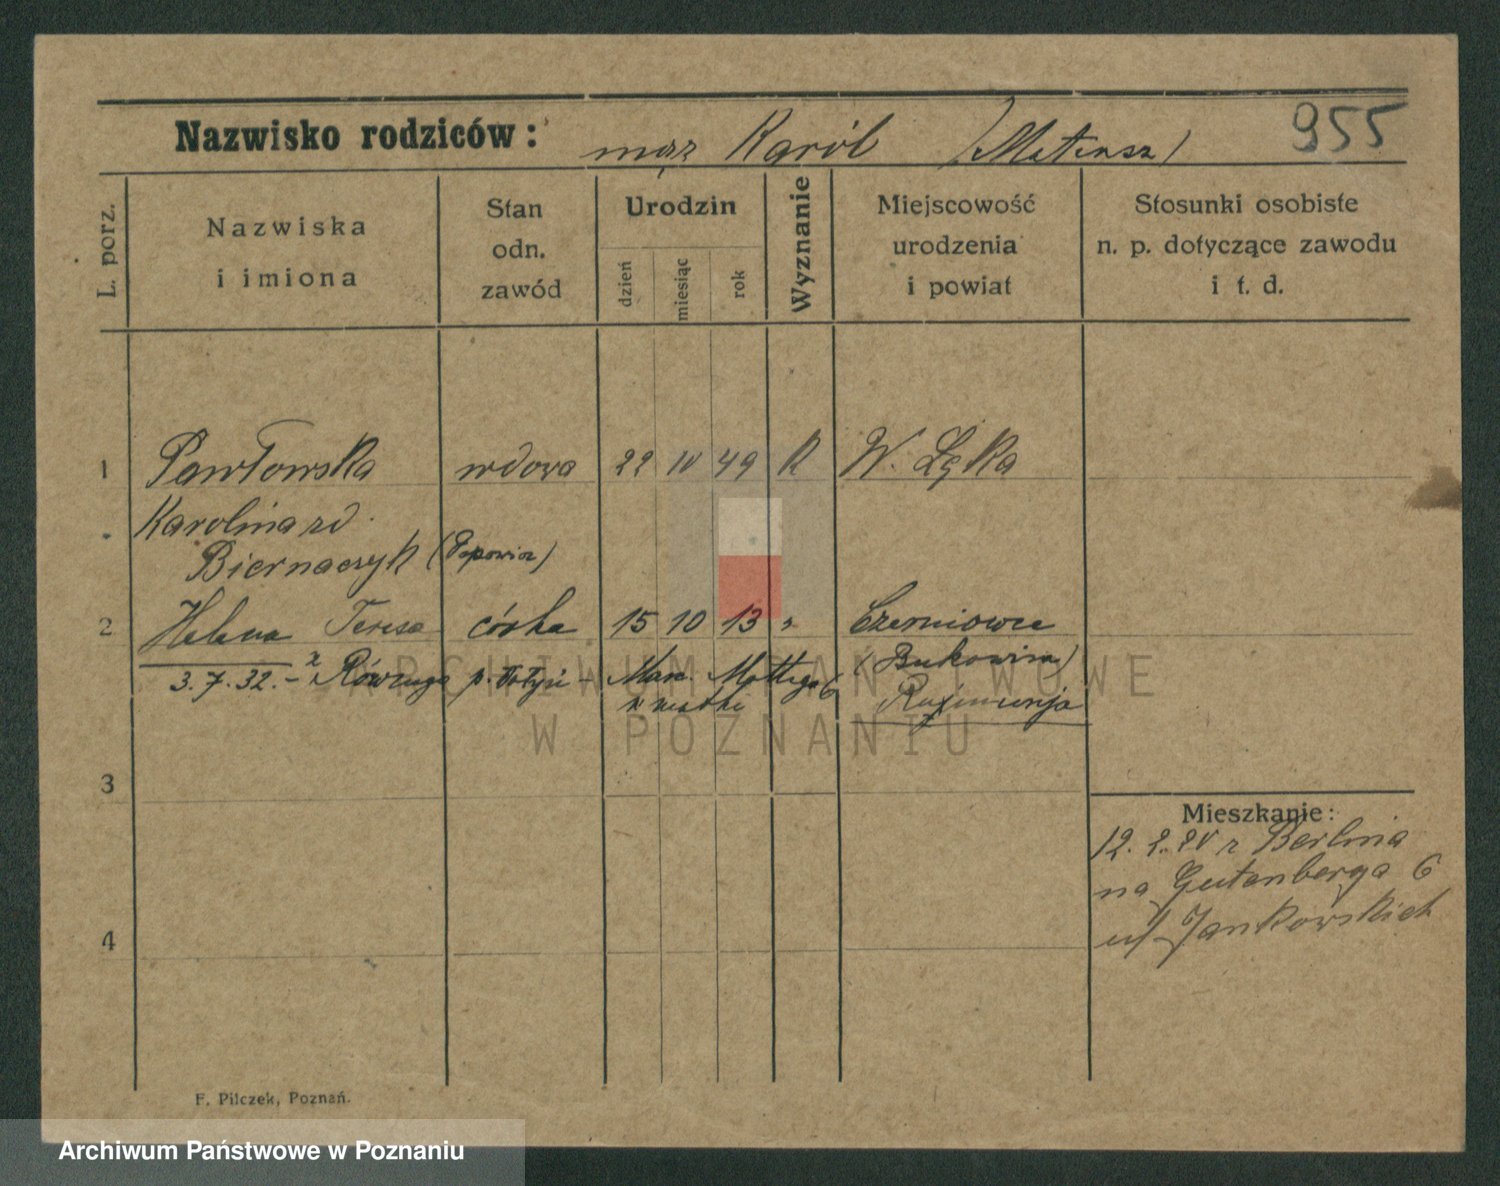 955
Nazwisko rodziców: mąż Karól (Mateusz)
L. porz.
Nazwiska i imiona
Stan odn. zawód
Urodzin
dzień
miesiąc
rok
Wyznanie
Miejscowość urodzenia i powiat
Stosunki osobiste n. p. dotyczące zawodu i t. d.
1 Pawłowska wdowa 22 IV 49 K W. Łęka
Karolina zd
Biernaczyk
2 Helena Teresa córka 15 10 13 " Czerniowce
(Bukowina)
3.7.32.- z Równego
Rumunja
3
4
Mieszkanie:
12. 2. 20 z Berlina
na Gutenberga 6
u/ Jankowskich
F. Pilczek, Poznań.
ARCHIWUM PAŃSTWOWE
W POZNANIU
Archiwum Państwowe w Poznaniu